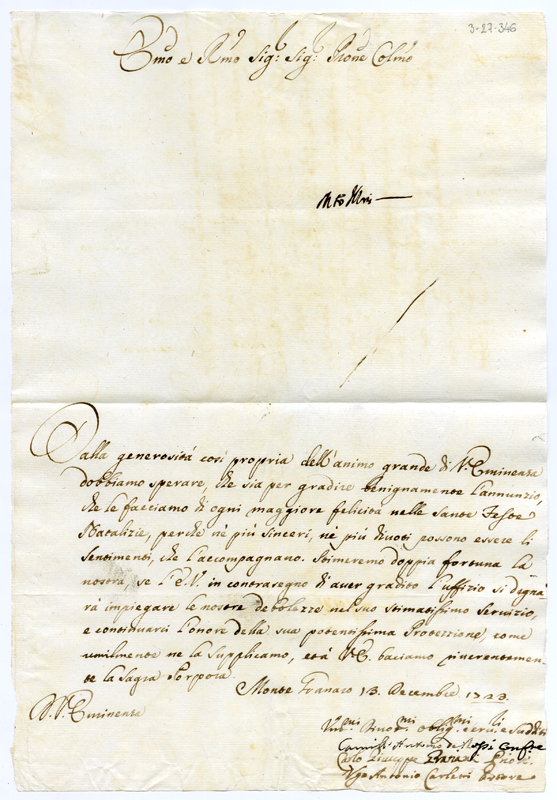 3-27-346
Emo e Rmo Sig: Sig: Prone Colmo
Dalla generosità così propria dell'animo grande di V. Eminenza
dobbiamo sperare, che sia per gradire benignamente l'annunzio,
che le facciamo di ogni maggiore felicità nelle Sante Feste
Natalizie, perchè nè più sinceri, nè più divoti possono essere li
Sentimenti, che l'accompagnano. Stimeremo doppia fortuna la
nostra, se l'E.V. in contrasegno di aver gradito l'uffizio si degna-
rà impiegare le nostre debolezze nel suo stimatissimo Servizio,
e continuarci l'onore della sua potentissima Protezzione come
umilmente ne la Supplicamo, et à V.E. baciamo riverentemen-
te la Sagra Porpora.
Monte Franco 13 Decembre 1723.
D. V. Eminenza
Umi Divotmi obligmi servi e Sudditi
Antonio de Rossi
Carlo Giuseppe Priore
Antonio Carletti